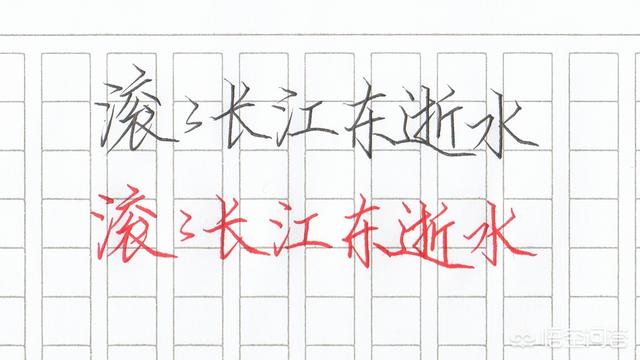 滚〻长江东逝水
滚〻长江东逝水
悟空问答